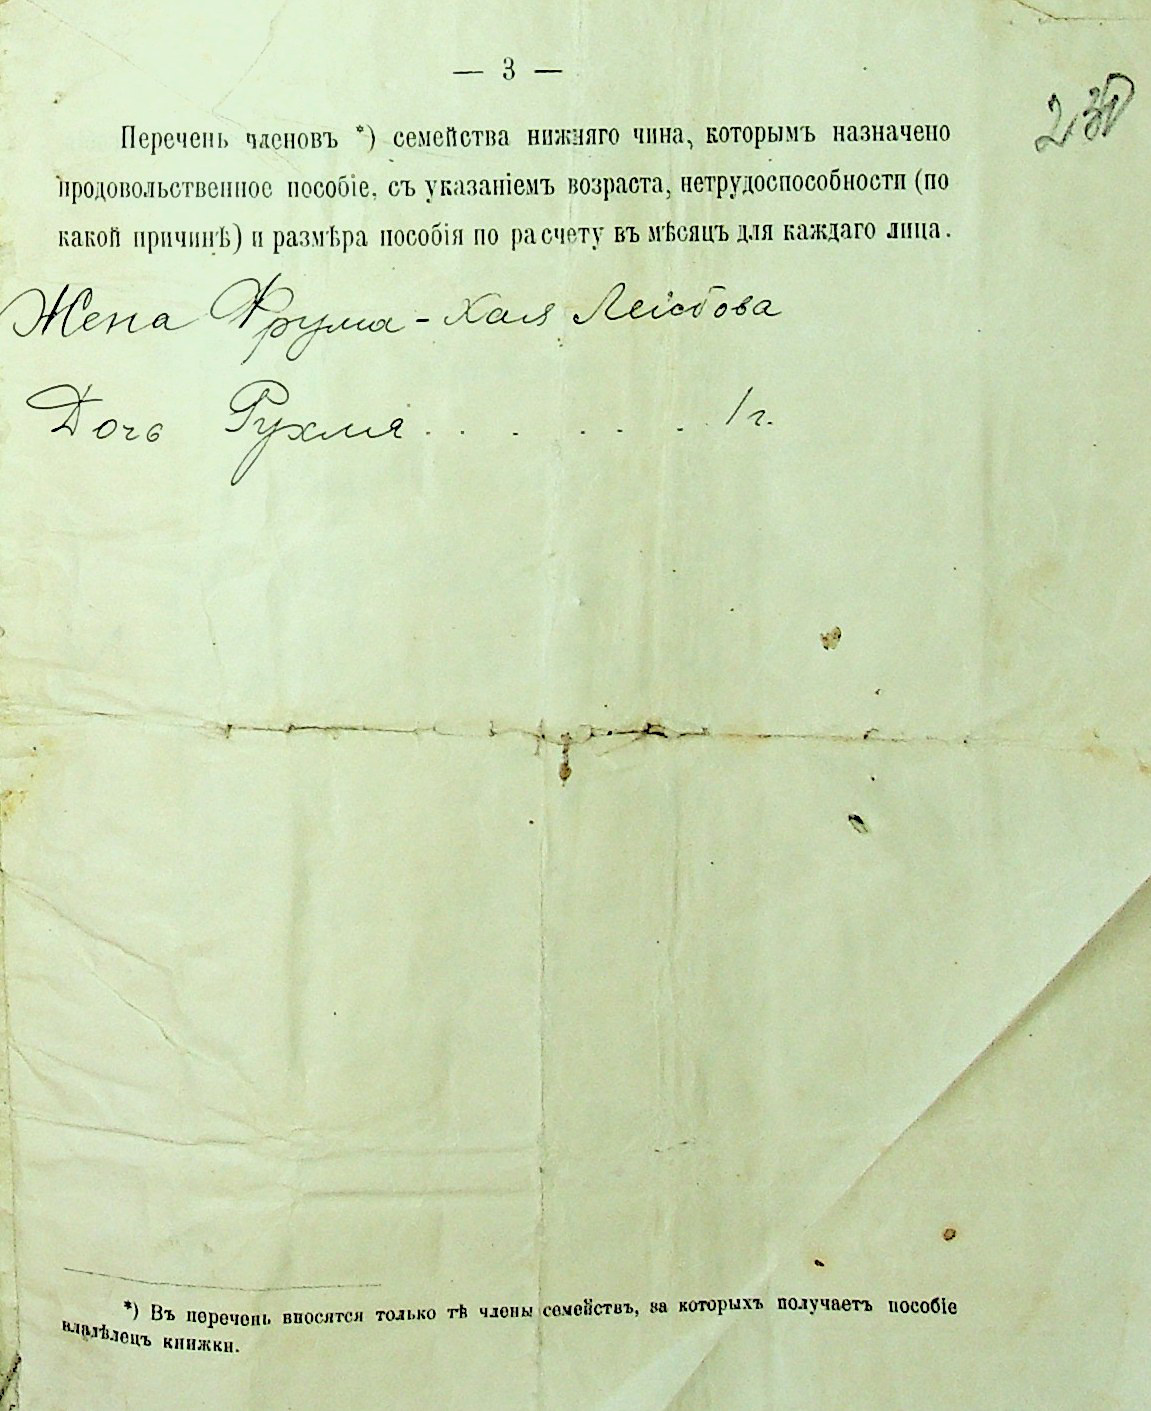 — 3 —
Перечень членовъ *) семейства нижняго чина, которымъ назначено
продовольственное пособіе, съ указаніемъ возраста, нетрудоспособности (по
какой причинѣ) и размѣра пособія по расчету въ мѣсяцъ для каждаго лица.
Жена Фрума - Хая Лейбова
Дочь Рухля . . . . . . 1 г.
*) Въ перечень вносятся только тѣ члены семействъ, за которыхъ получаетъ пособіе
владѣлецъ книжки.